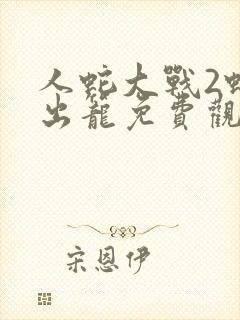 人蛇大戰2蛇
出籠免費觀
宋恩伊